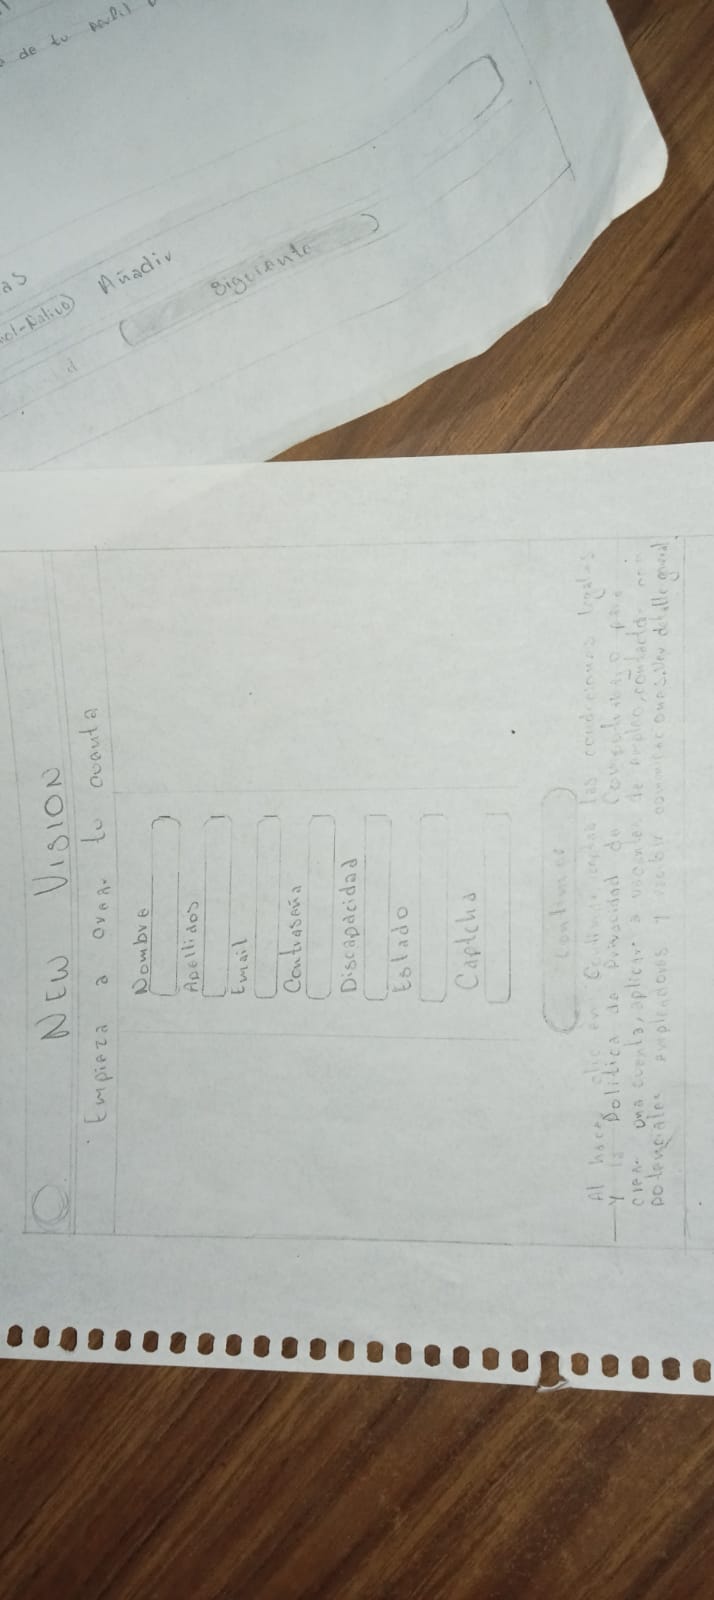 NEW VISION
Empieza a crear tu cuenta
Nombre
Apellidos
Email
Contraseña
Discapacidad
Estado
Captcha
Continuar
Al hacer clic en Continuar aceptas las condiciones legales
y la Politica de Privacidad de Computrabajo para
crear una cuenta, aplicar a vacantes de empleo, contactar con
potenciales empleadores y recibir comunicaciones. Ver detalle general
as
Añadir
Siguiente
de tu